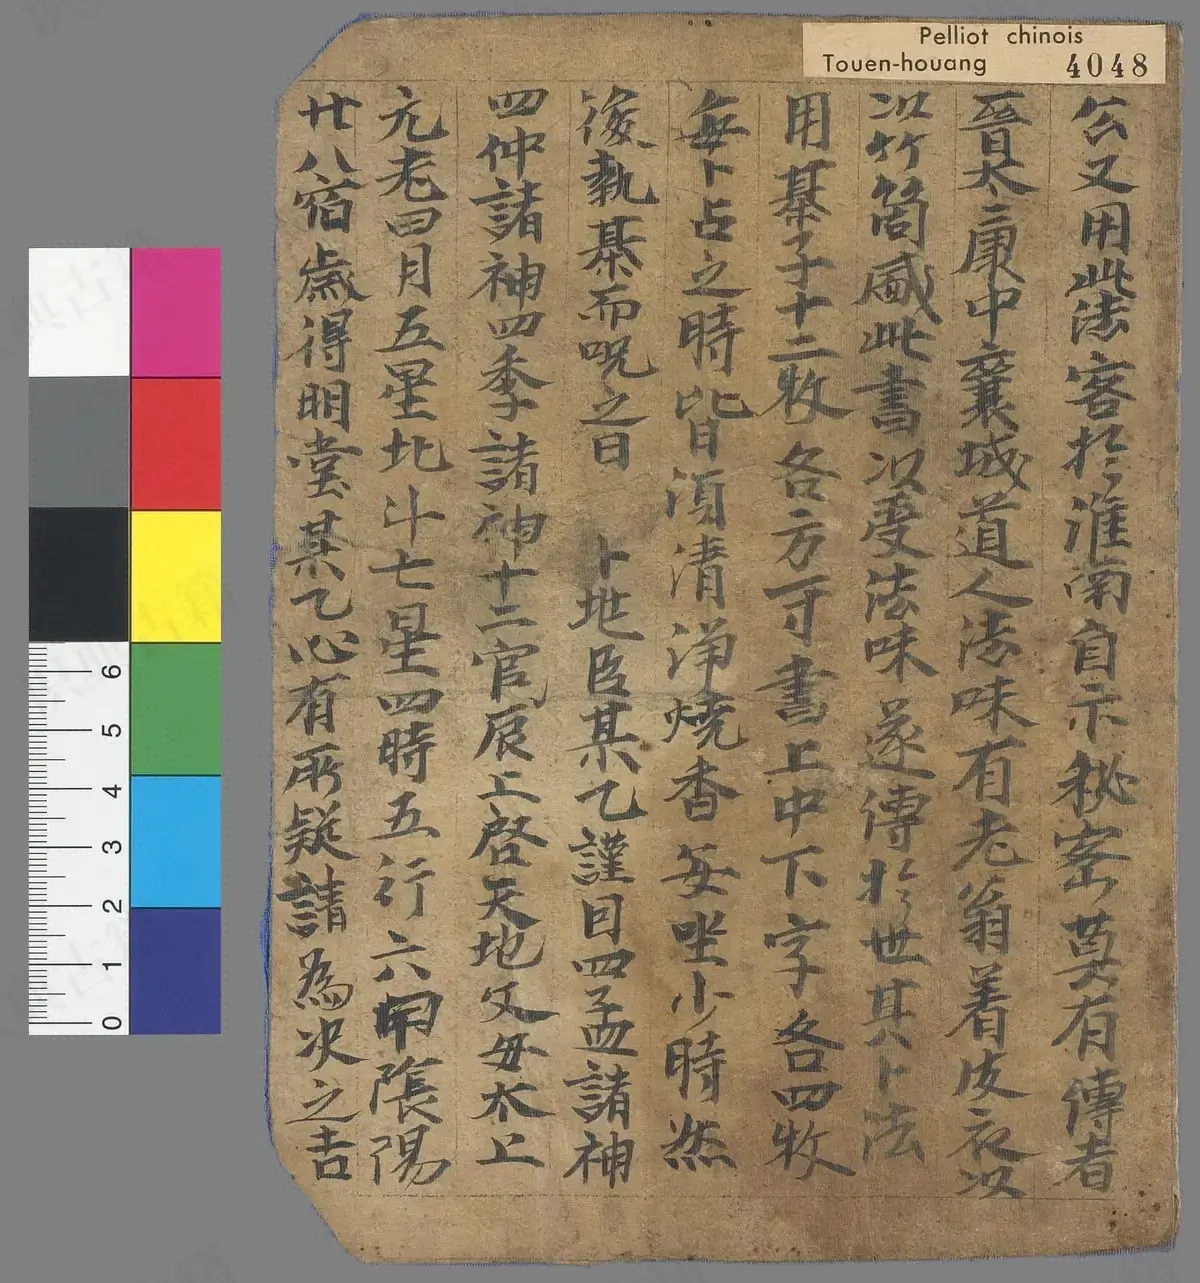 Pelliot chinois
Touen-houang 4048
公又用此法客於淮南自示秘密莫有傳者
晋太康中襄城道人法味有老翁着皮衣以
竹筒盛此書以受法味遂傳於世其卜法
用棊子十二牧各方寸書上中下字各四牧
每卜占之時皆須清淨燒香每坐少時然
後執棊而呪之曰 卜地臣某乙謹因四孟諸神
四仲諸神四季諸神十二官辰上啓天地父母太上
元老日月五星北斗七星四時五行六甲陰陽
廿八宿歲得明堂某乙心有所疑請為決之吉
6
5
4
3
2
1
0